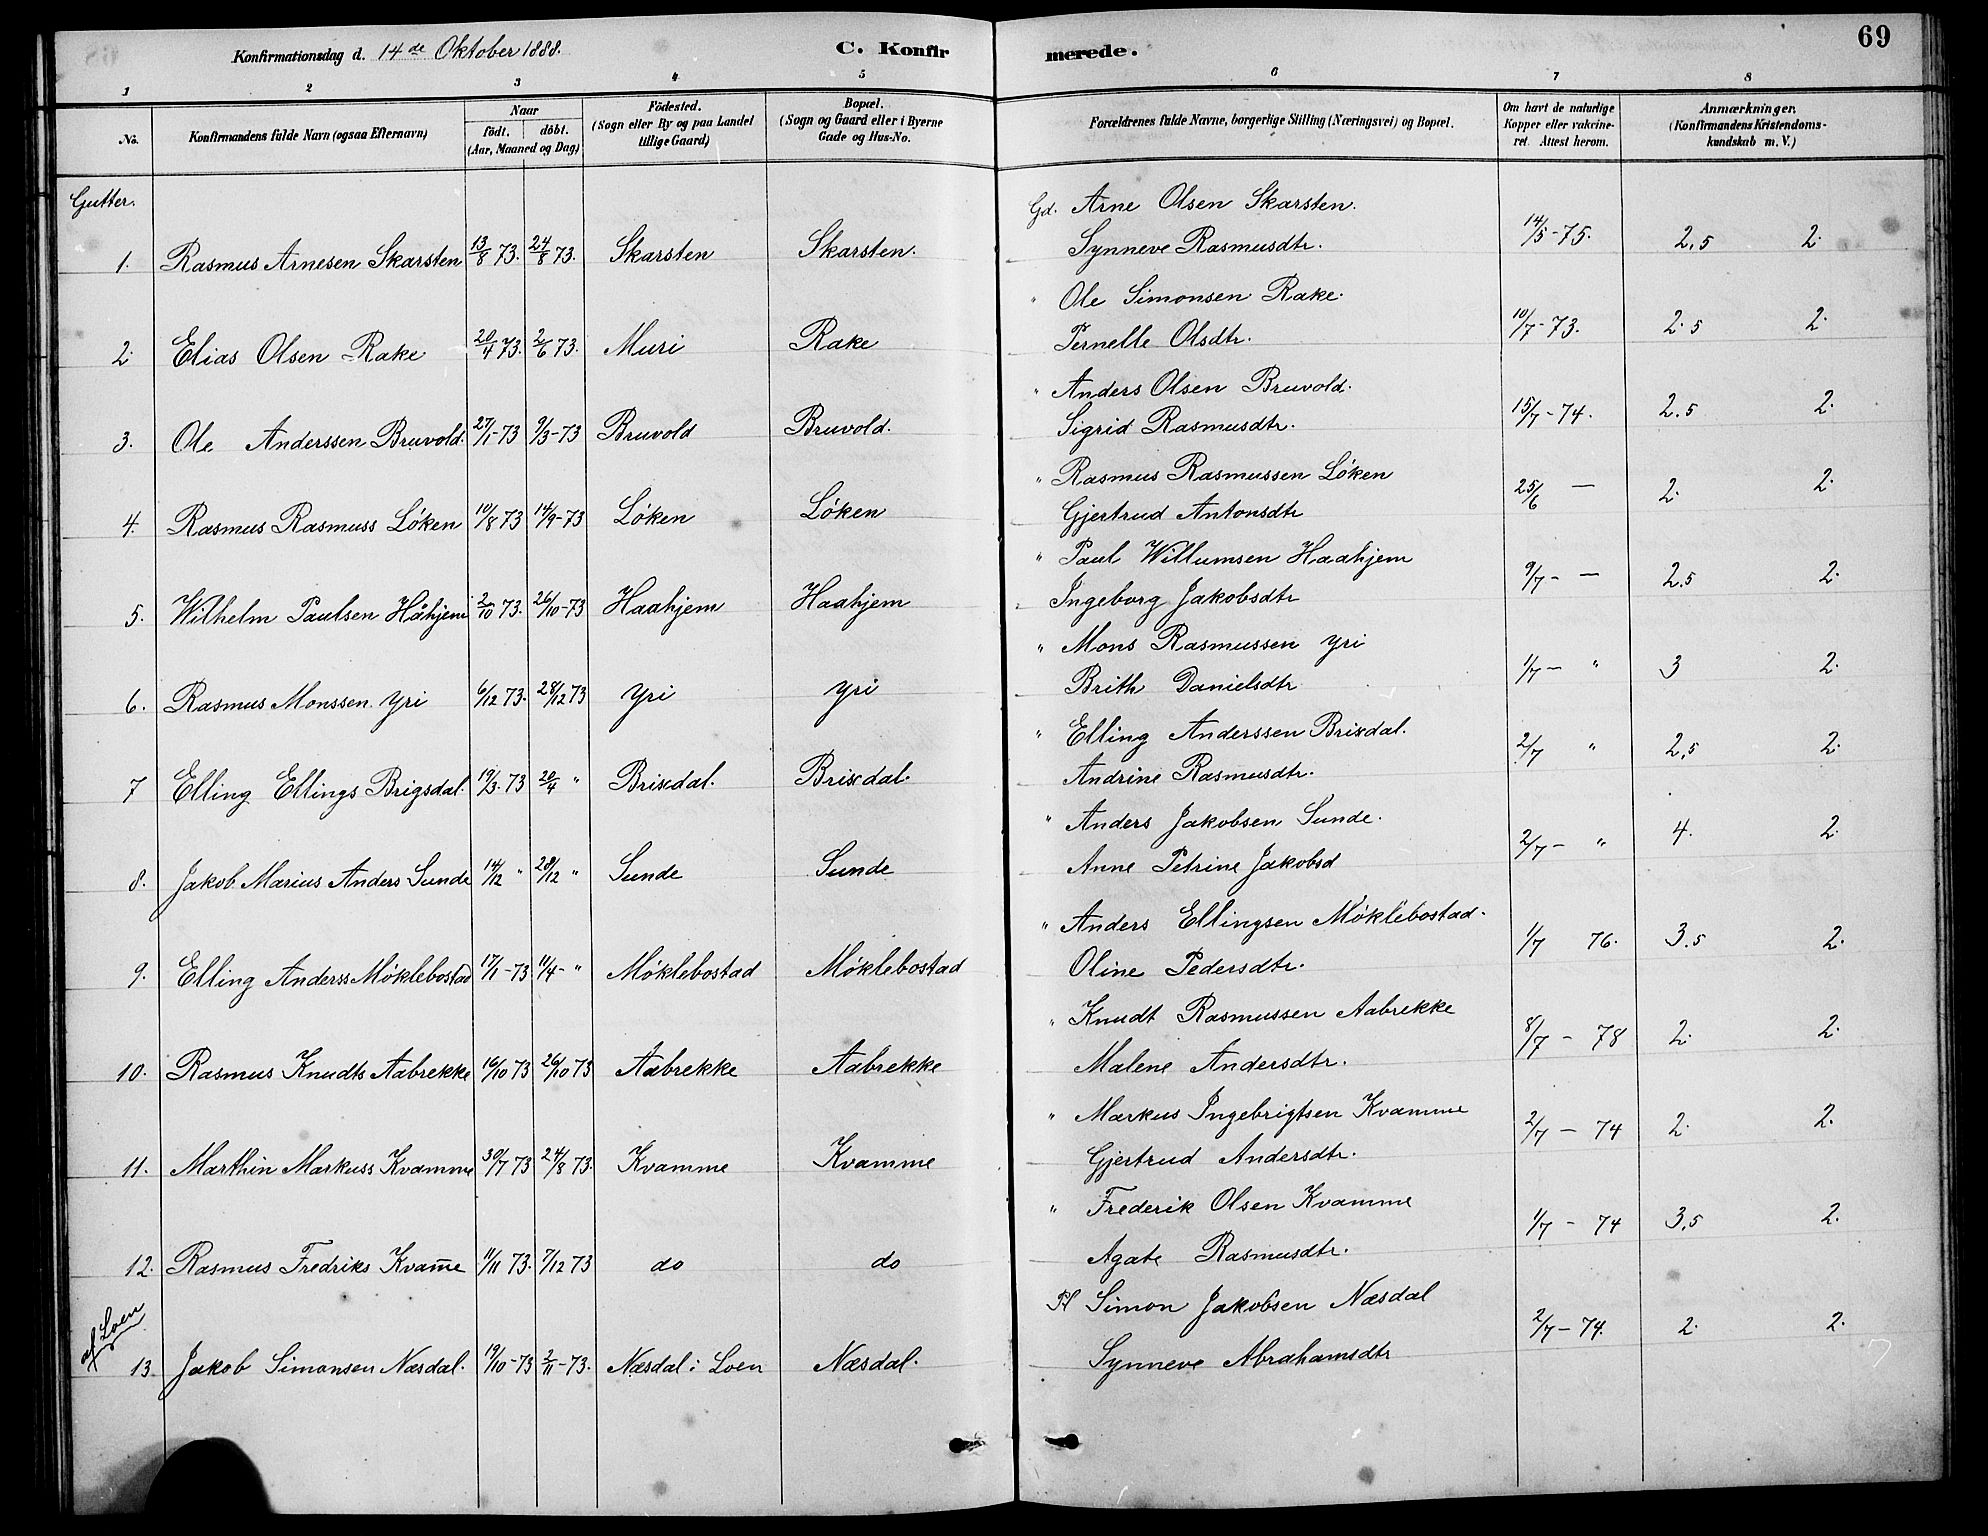 69
Konfirmationsdag d. 14de Oktober 1888. C. Konfirmerede.
1 2 3 4 5 6 7 8
No. Konfirmandens fulde Navn (ogsaa Efternavn) Naar født. døbt. (Aar, Maaned og Dag) Födested. (Sogn eller By og paa Landet tillige Gaard) Bopæl. (Sogn og Gaard eller i Byerne Gade og Hus-No. Forældrenes fulde Navne, borgerlige Stilling (Næringsvei) og Bopæl. Om havt de naturlige Kopper eller vakcineret. Attest herom. Anmærkninger. (Konfirmandens Kristendomskundskab m. V.)
Gutter.
Gd. Arne Olsen Skarsten.
1. Rasmus Arnesen Skarsten 13/8 73. 24/8 73. Skarsten Skarsten. Synneve Rasmusdtr. 14/5-75. 2,5 2.
" Ole Simonsen Rake.
2. Elias Olsen Rake 20/4 73. 2/6 73. Muri Rake Pernelle Olsdtr. 10/7-73. 2.5 2.
" Anders Olsen Bruvold.
3. Ole Anderssen Bruvold. 27/1-73 9/3-73 Bruvold Bruvold. Sigrid Rasmusdtr. 15/7-74. 2.5 2.
" Rasmus Rasmussen Løken
4. Rasmus Rasmuss Løken 10/8 73 14/9-73 Løken Løken Gjertrud Antonsdtr 25/6 — 2. 2.
" Paul Willumsen Haahjem
5. Wilhelm Paulsen Håhjem 2/10 73. 26/10-73 Haahjem Haahjem Ingeborg Jakobsdtr 9/7 - — 2,5 2.
" Mons Rasmussen Yri
6. Rasmus Monssen Yri 6/12 73. 28/12 73 Yri Yri Brith Danielsdtr 1/7 - " 3 2.
" Elling Anderssen Brixdal.
7 Elling Ellings Brigsdal. 19/3.73 20/4 " Brixdal. Brixdal. Andrine Rasmusdtr. 2/7 " 2,5 2.
" Anders Jakobsen Sunde.
8. Jakob Marius Anders Sunde 14/12 " 28/12 " Sunde Sunde Anne Petrine Jakobsd 2/7 - " 4. 2.
" Anders Ellingsen Møklebostad.
9. Elling Anderss Møklebostad 17/1-73 11/4- " Møklebostad Møklebostad Oline Pedersdtr. 1/7 76. 3.5 2.
" Knudt Rasmussen Aabrekke
10. Rasmus Knudts Aabrekke 16/10 73 26/10 73 Aabrekke Aabrekke Malene Andersdtr. 8/7 - 78 2. 2.
" Markus Ingebrigtsen Kvamme
11. Marthin Markuss Kvamme 30/7 73 24/8 73. Kvamme Kvamme Gjertrud Andersdtr. 2/7 - 74 2. 2.
" Frederik Olsen Kvamme
12. Rasmus Fredriks Kvam̅e 11/11 73. 7/12 73 do do Agate Rasmusdtr. 1/7 - 74 3,5 2.
Pl Simon Jakobsen Næsdal
af Loen
13. Jakob Simonsen Næsdal. 19/10-73 2/11-73. Næsdal i Loen Næsdal. Synneve Abrahamsdtr 2/7-74. 2. 2.